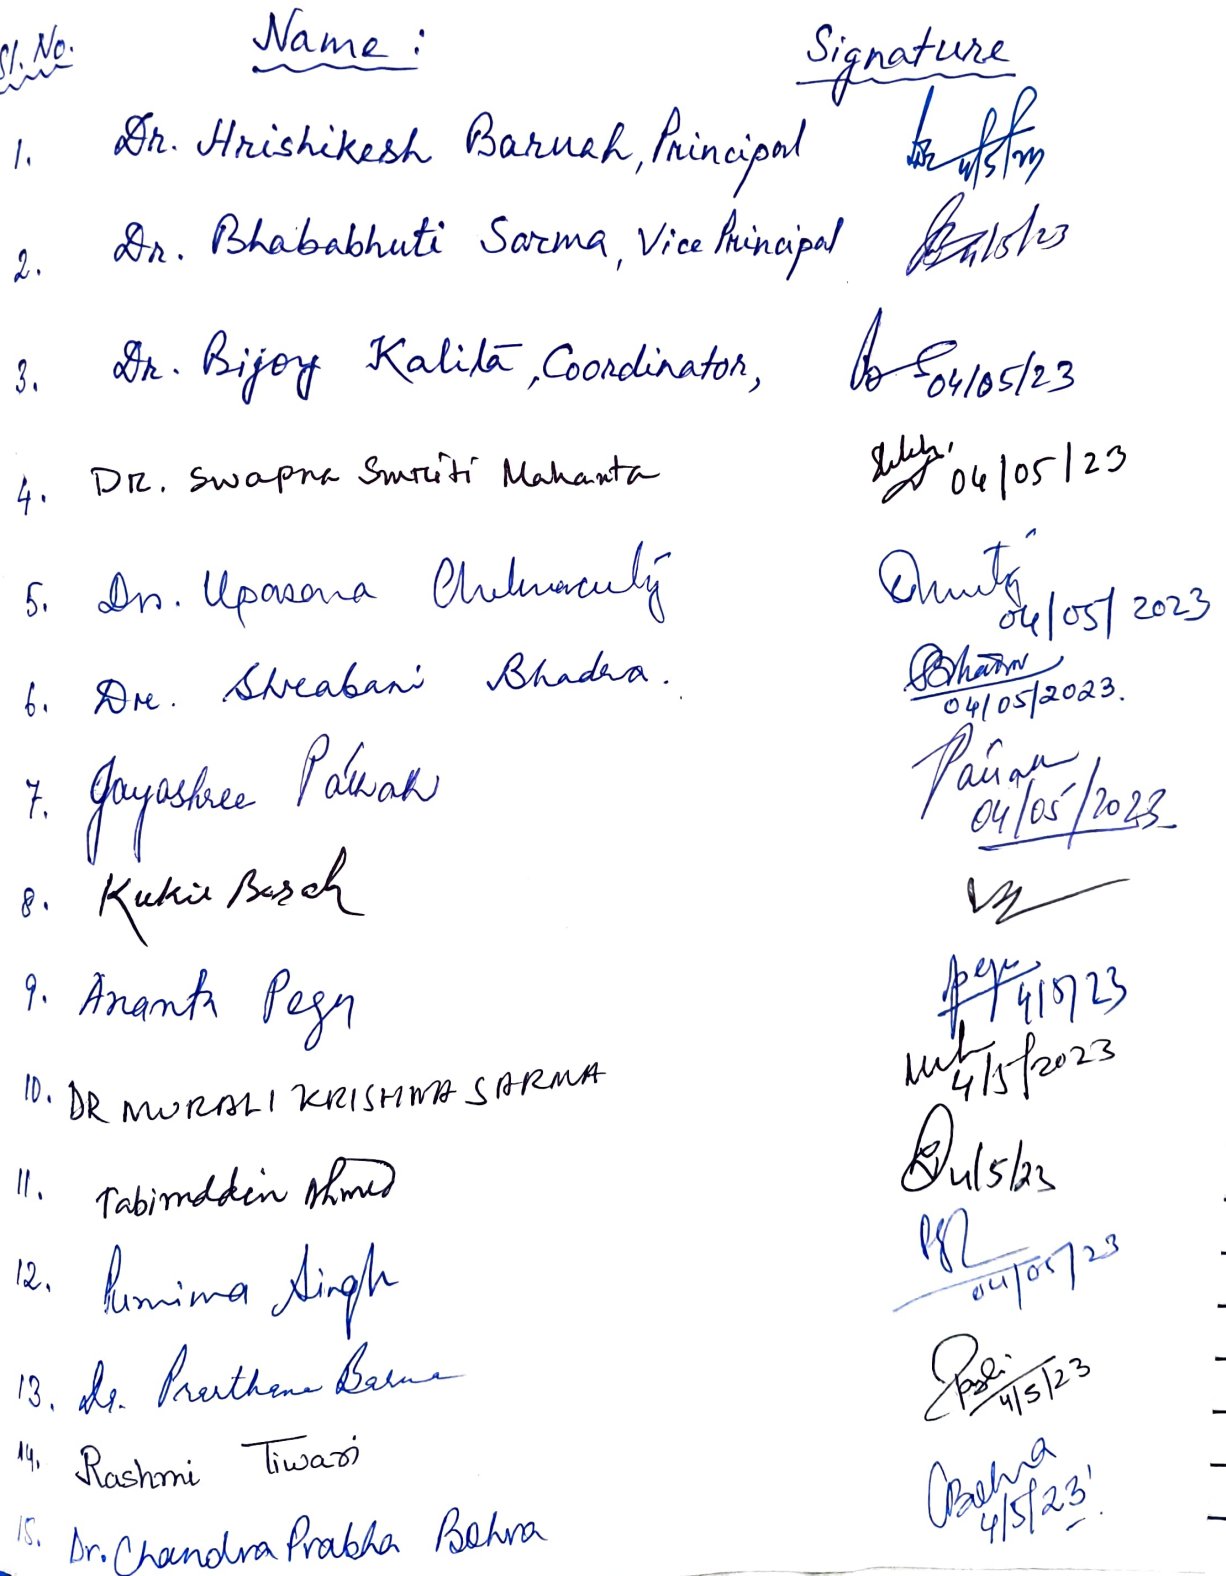 Sl. No. Name: Signature
1. Dr. Hrishikesh Baruah, Principal 4/5/23
2. Dr. Bhababhuti Sarma, Vice Principal 4/5/23
3. Dr. Bijoy Kalita, Coordinator, 04/05/23
4. DR. Swapna Smriti Mahanta 04/05/23
5. Dr. Upasana Chakravarty
04/05/2023
6. Dr. Shreabani Bhadra.
04/05/2023.
7. Jayashree Pathak
04/05/2023
8. Kukil Borah
9. Ananta Pegu Pegu 4/5/23
10. DR MURALI KRISHNA SARMA 4/5/2023
11. Tabiruddin Ahmed 4/5/23
12. Purnima Singh
04/05/23
13. Dr. Prarthana Barua
4/5/23
14. Rashmi Tiwari
15. Dr. Chandra Prabha Bohra Bohra
4/5/23